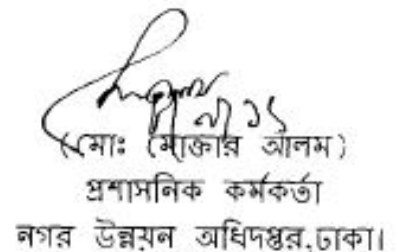 (মোঃ মোক্তার আলম)
প্রশাসনিক কর্মকর্তা
নগর উন্নয়ন অধিদপ্তর,ঢাকা।